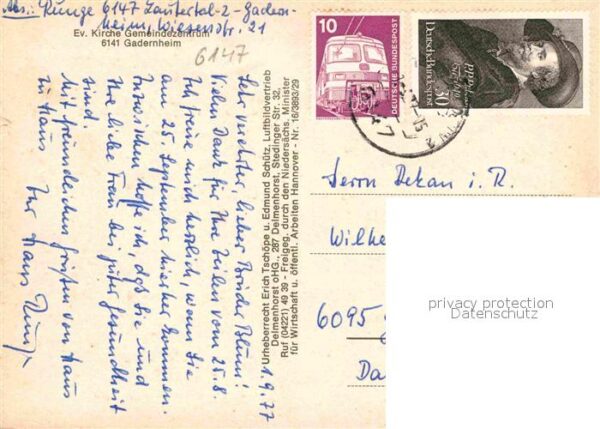 Abs.: Runge 6147 Lautertal-2-Gadern-
heim, Wiesenstr. 21
Ev. Kirche Gemeindezentrum
6141 Gadernheim
6147
1.9.77
Sehr verehrter, lieber Bruder Blum!
Vielen Dank für Ihre Zeilen vom 25.8.
Ich freue mich herzlich, wenn Sie
am 25. September hierher kommen.
Inzwischen hoffe ich, daß Sie und
Ihre liebe Frau bei guter Gesundheit
sind.
Mit freundlichen Grüßen von Haus
zu Haus Ihr Hans Runge
Urheberrecht Erich Tschöpe u. Edmund Schütz, Luftbildvertrieb
Delmenhorst oHG., 287 Delmenhorst, Stedinger Str. 32,
Ruf (04221) 49 39 - Freigeg. durch den Niedersächs. Minister
für Wirtschaft u. öffentl. Arbeiten Hannover - Nr. 16/3893/29
10
DEUTSCHE BUNDESPOST
Deutsche Bundespost
30
Herrn Dekan i. R.
Wilhe
6095
Da
privacy protection
Datenschutz